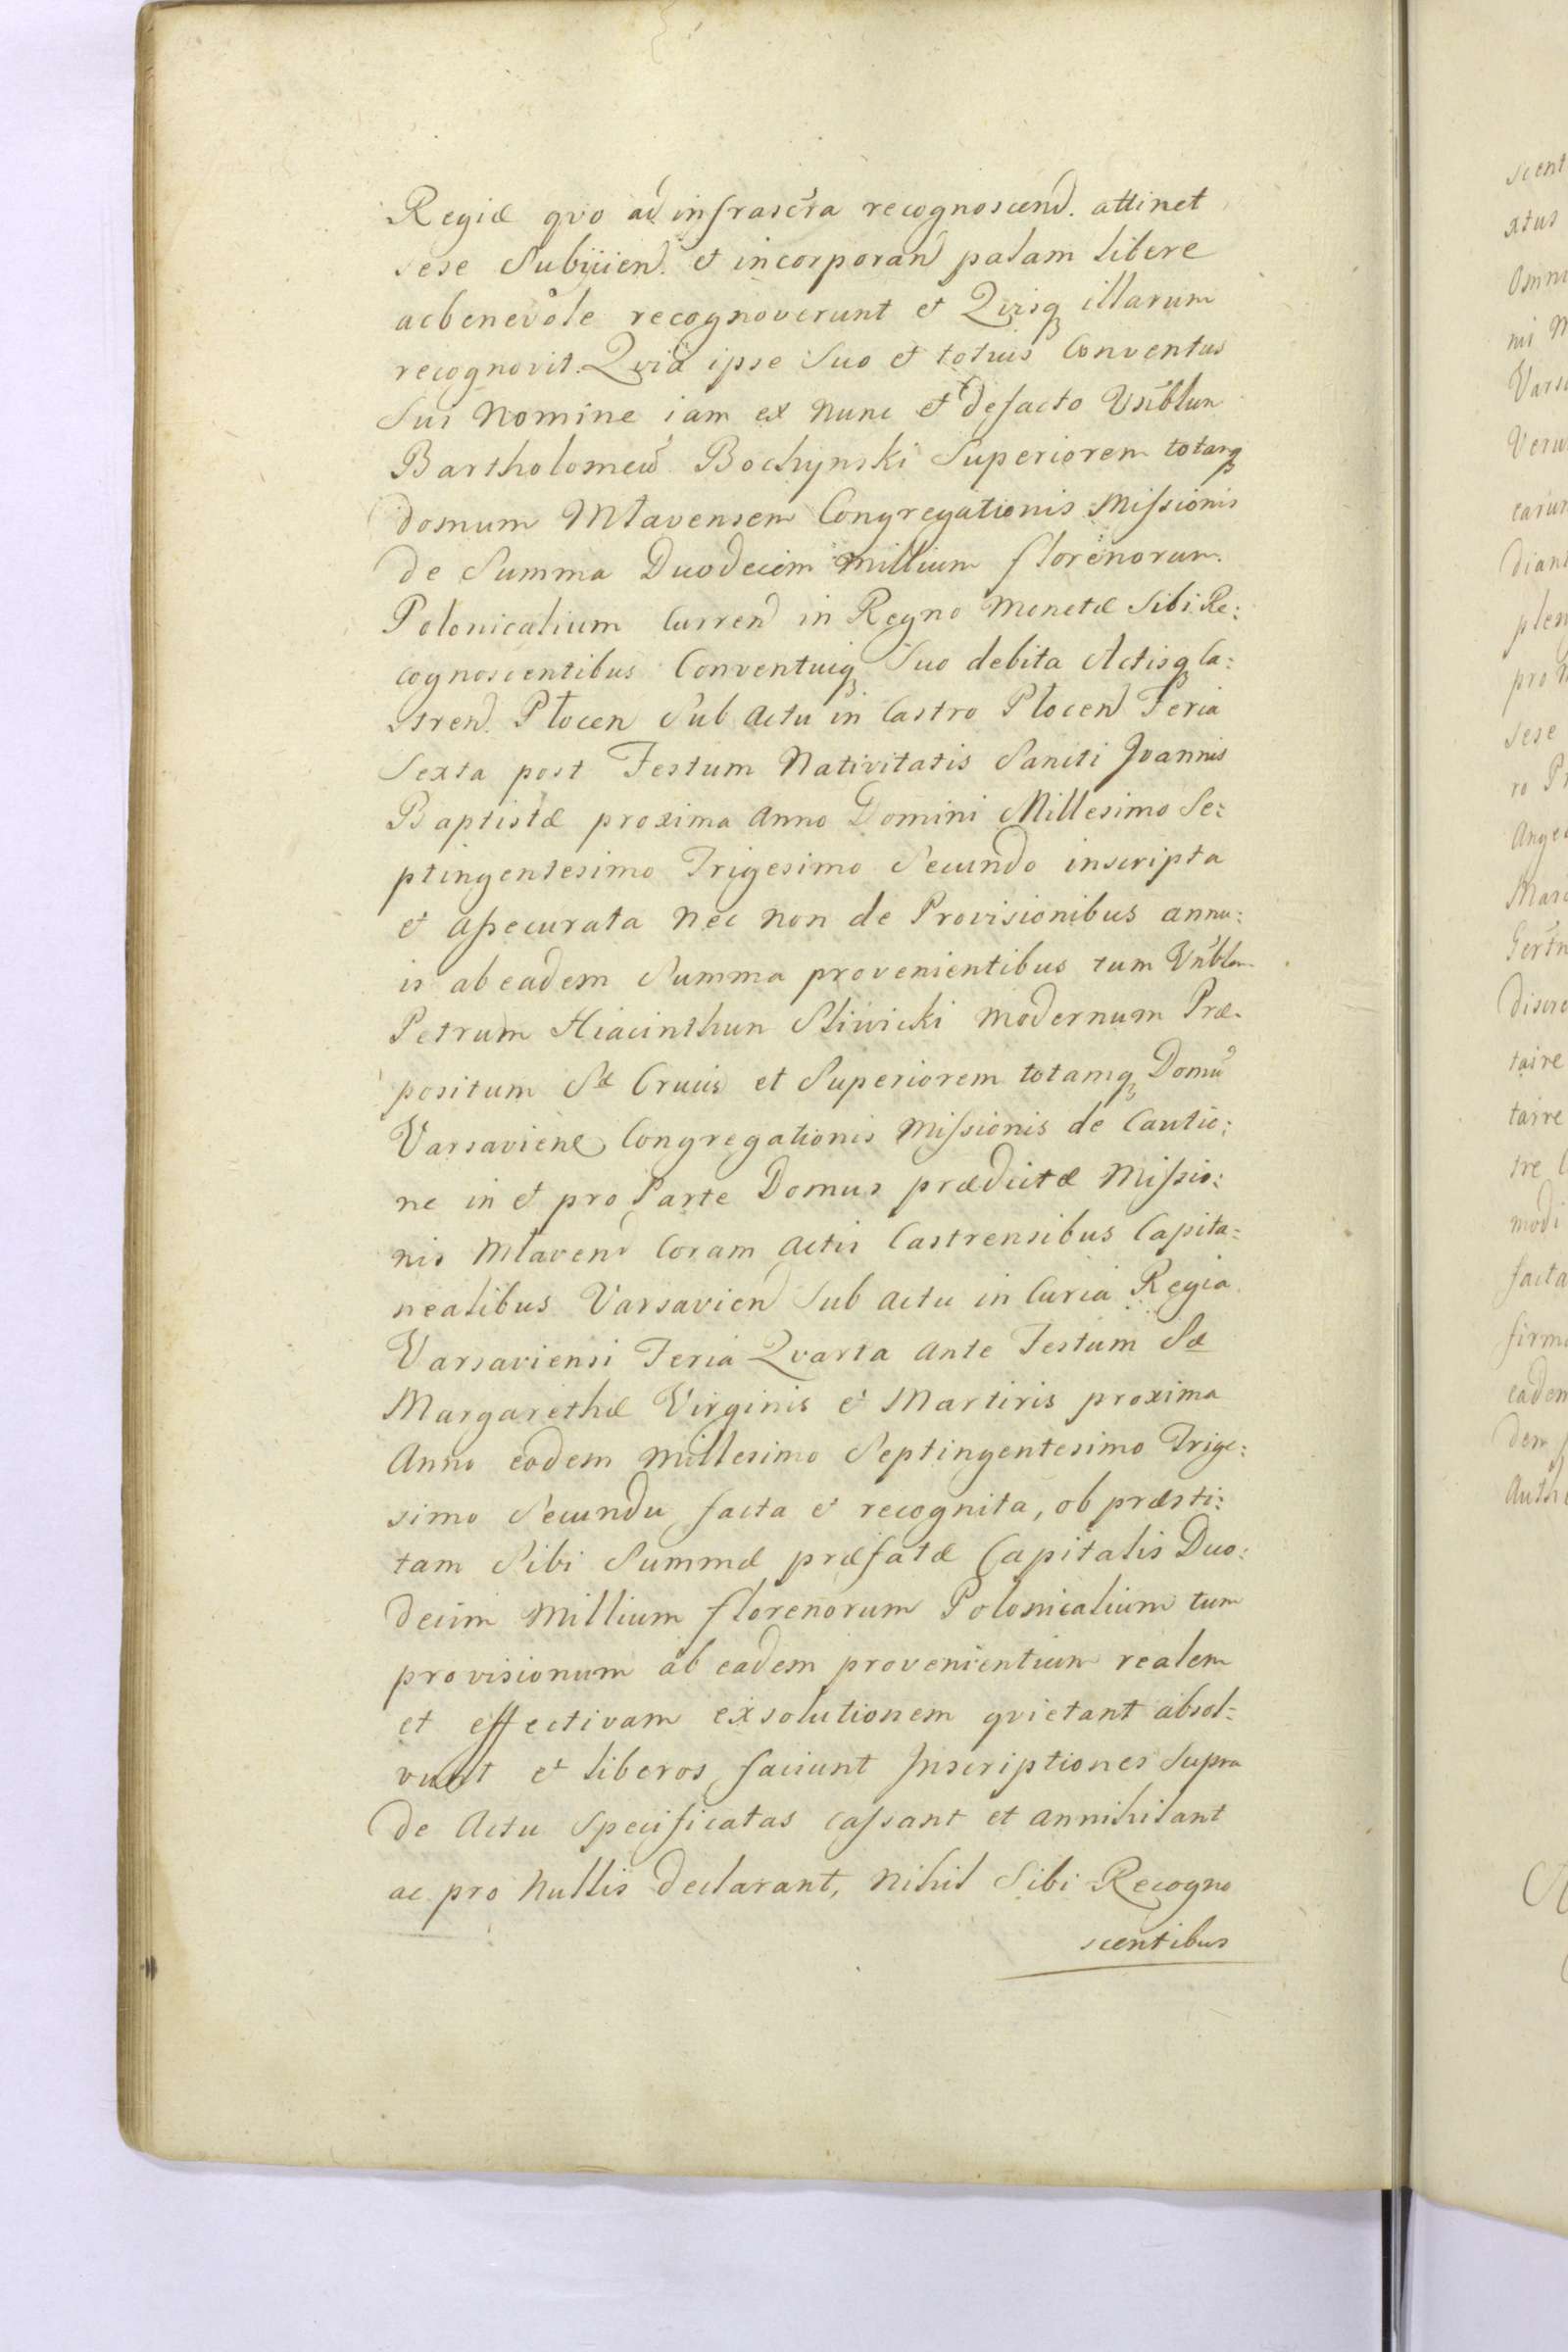 Regiæ qvo ad infrascra recognoscend. attinet
sese Subijciend. et incorporand palam libere
ac benevole recognoverunt et Qvisq illarum
recognovit. Qvia ipse Suo et totius Conventus
Sui Nomine iam ex nunc et defacto Vnblum
Bartholomeu Bochynski Superiorem totamq
domum Mławensem Congregationis Missionis
de Summa Duodecim millium florenorum
Polonicalium Curren in Regno Monetæ Sibi Re:
cognoscentibus Conventuiq Suo debita Actisq Ca:
stren. Płocen Sub Actu in Castro Płocen Feria
Sexta post Festum Nativitatis Sancti Joannis
Baptistæ proxima Anno Domini Millesimo Se:
ptingentesimo Trigesimo Secundo inscripta
et assecurata nec non de Provisionibus annu:
is ab eadem Summa provenientibus tum Vnblem
Petrum Hiacinthum Sliwicki modernum Præ.
positum Sæ Crucis et Superiorem totamq Domu
Varsaviene Congregationis Missionis de Cautio:
ne in et pro Parte Domus prædictæ Missio:
nis Mlaven Coram Actis Castrensibus Capita:
nealibus Varsavien Sub actu in Curia Regia
Varsaviensi Feria Qvarta ante Festum Sæ
Margarethæ Virginis et Martiris proxima
Anno eodem millesimo Septingentesimo Trige:
simo Secundu facta et recognita, ob præsti:
tam Sibi Summæ præfatæ Capitalis Duo:
decim Millium florenorum Polonicalium tum
provisionum ab eadem provenientium realem
et effectivam exsolutionem qvietant absol:
vunt et liberos faciunt Inscriptiones Supra
de Actu Specificatas cassant et annihilant
ac pro Nullis declarant, Nihil Sibi Recogno
scentibus